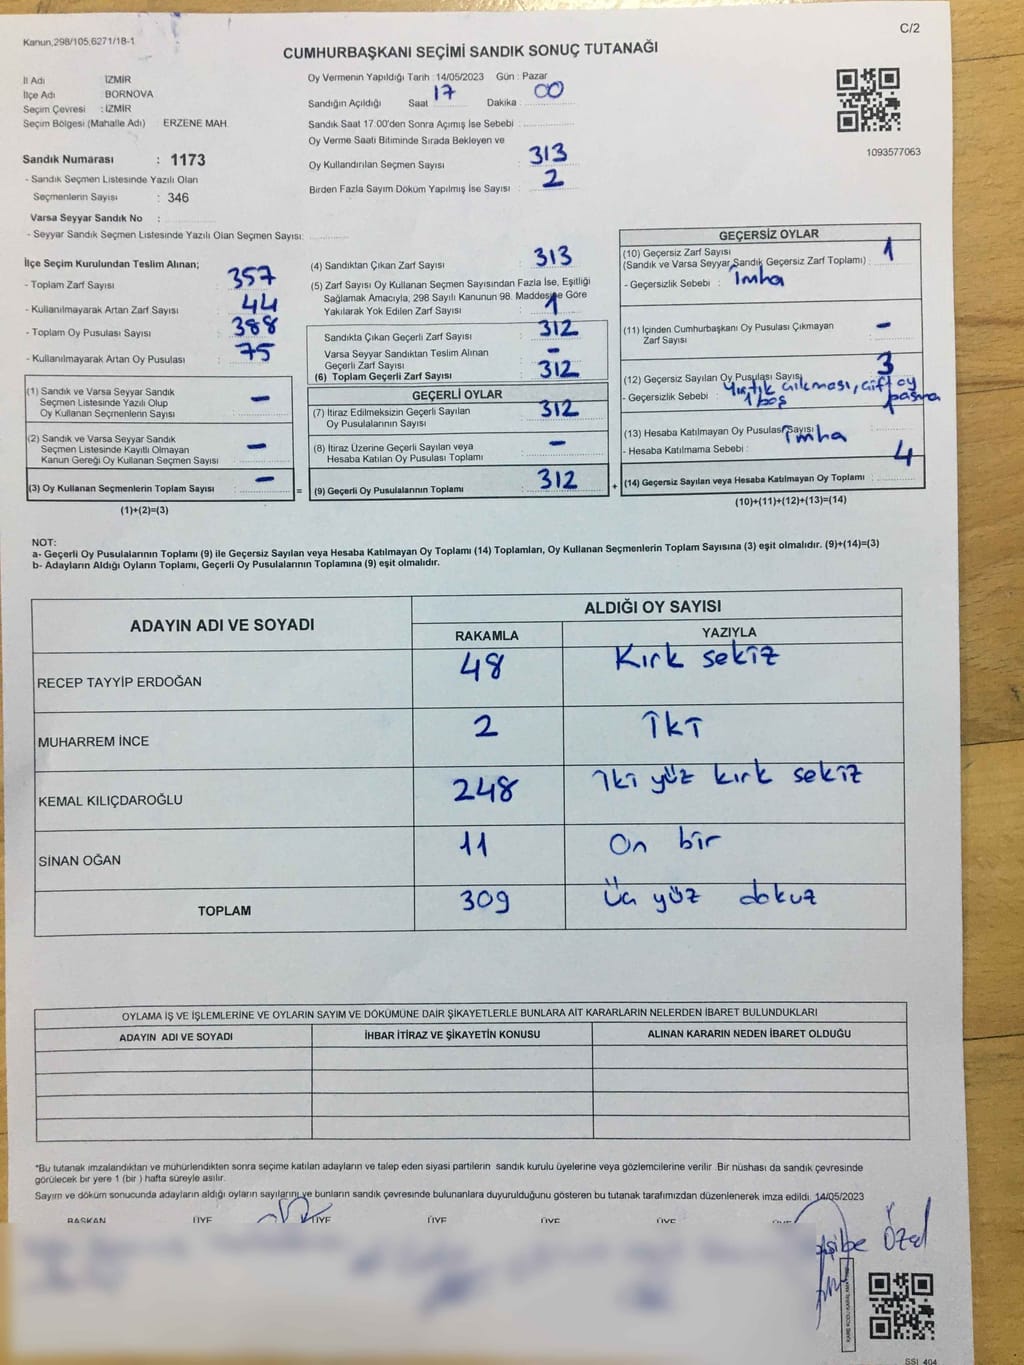 Kanun,298/105,6271/18-1
C/2
CUMHURBAŞKANI SEÇİMİ SANDIK SONUÇ TUTANAĞI
İl Adı : İZMİR
İlçe Adı : BORNOVA
Seçim Çevresi : İZMİR
Seçim Bölgesi (Mahalle Adı) : ERZENE MAH.
Sandık Numarası : 1173
- Sandık Seçmen Listesinde Yazılı Olan
Seçmenlerin Sayısı : 346
Varsa Seyyar Sandık No :
- Seyyar Sandık Seçmen Listesinde Yazılı Olan Seçmen Sayısı:
Oy Vermenin Yapıldığı Tarih : 14/05/2023 Gün : Pazar
Sandığın Açıldığı Saat 17 Dakika : 00
Sandık Saat 17:00'den Sonra Açımış İse Sebebi :
Oy Verme Saati Bitiminde Sırada Bekleyen ve
Oy Kullandırılan Seçmen Sayısı : 313
Birden Fazla Sayım Döküm Yapılmış İse Sayısı : 2
1093577063
İlçe Seçim Kurulundan Teslim Alınan;
- Toplam Zarf Sayısı : 357
- Kullanılmayarak Artan Zarf Sayısı : 44
- Toplam Oy Pusulası Sayısı : 388
- Kullanılmayarak Artan Oy Pusulası : 75
(1) Sandık ve Varsa Seyyar Sandık
Seçmen Listesinde Yazılı Olup
Oy Kullanan Seçmenlerin Sayısı : -
(2) Sandık ve Varsa Seyyar Sandık
Seçmen Listesinde Kayıtlı Olmayan
Kanun Gereği Oy Kullanan Seçmen Sayısı : -
(3) Oy Kullanan Seçmenlerin Toplam Sayısı : - =
(1)+(2)=(3)
(4) Sandıktan Çıkan Zarf Sayısı : 313
(5) Zarf Sayısı Oy Kullanan Seçmen Sayısından Fazla İse, Eşitliği
Sağlamak Amacıyla, 298 Sayılı Kanunun 98. Maddesine Göre
Yakılarak Yok Edilen Zarf Sayısı : 1
Sandıkta Çıkan Geçerli Zarf Sayısı : 312
Varsa Seyyar Sandıktan Teslim Alınan
Geçerli Zarf Sayısı : -
(6) Toplam Geçerli Zarf Sayısı : 312
GEÇERLİ OYLAR
(7) İtiraz Edilmeksizin Geçerli Sayılan
Oy Pusulalarının Sayısı : 312
(8) İtiraz Üzerine Geçerli Sayılan veya
Hesaba Katılan Oy Pusulası Toplamı : -
(9) Geçerli Oy Pusulalarının Toplamı : 312 +
GEÇERSİZ OYLAR
(10) Geçersiz Zarf Sayısı
(Sandık ve Varsa Seyyar Sandık Geçersiz Zarf Toplamı) : 1
- Geçersizlik Sebebi : imha
(11) İçinden Cumhurbaşkanı Oy Pusulası Çıkmayan
Zarf Sayısı : -
(12) Geçersiz Sayılan Oy Pusulası Sayısı : 3
- Geçersizlik Sebebi : Yırtık çıkması, çift oy
1 boş basma
(13) Hesaba Katılmayan Oy Pusulası Sayısı
- Hesaba Katılmama Sebebi : imha
(14) Geçersiz Sayılan veya Hesaba Katılmayan Oy Toplamı : 4
(10)+(11)+(12)+(13)=(14)
NOT:
a- Geçerli Oy Pusulalarının Toplamı (9) ile Geçersiz Sayılan veya Hesaba Katılmayan Oy Toplamı (14) Toplamları, Oy Kullanan Seçmenlerin Toplam Sayısına (3) eşit olmalıdır. (9)+(14)=(3)
b- Adayların Aldığı Oyların Toplamı, Geçerli Oy Pusulalarının Toplamına (9) eşit olmalıdır.
ADAYIN ADI VE SOYADI
ALDIĞI OY SAYISI
RAKAMLA YAZIYLA
RECEP TAYYİP ERDOĞAN 48 Kırk sekiz
MUHARREM İNCE 2 İki
KEMAL KILIÇDAROĞLU 248 İki yüz kırk sekiz
SİNAN OĞAN 11 On bir
TOPLAM 309 Üç yüz dokuz
OYLAMA İŞ VE İŞLEMLERİNE VE OYLARIN SAYIM VE DÖKÜMÜNE DAİR ŞİKAYETLERLE BUNLARA AİT KARARLARIN NELERDEN İBARET BULUNDUKLARI
ADAYIN ADI VE SOYADI İHBAR İTİRAZ VE ŞİKAYETİN KONUSU ALINAN KARARIN NEDEN İBARET OLDUĞU
*Bu tutanak imzalandıktan ve mühürlendikten sonra seçime katılan adayların ve talep eden siyasi partilerin sandık kurulu üyelerine veya gözlemcilerine verilir. Bir nüshası da sandık çevresinde
görülecek bir yere 1 (bir ) hafta süreyle asılır.
Sayım ve döküm sonucunda adayların aldığı oyların sayılarını ve bunların sandık çevresinde bulunanlara duyurulduğunu gösteren bu tutanak tarafımızdan düzenlenerek imza edildi. 14/05/2023
BAŞKAN ÜYE ÜYE ÜYE ÜYE ÜYE ÜYE
Özel
SSI 404